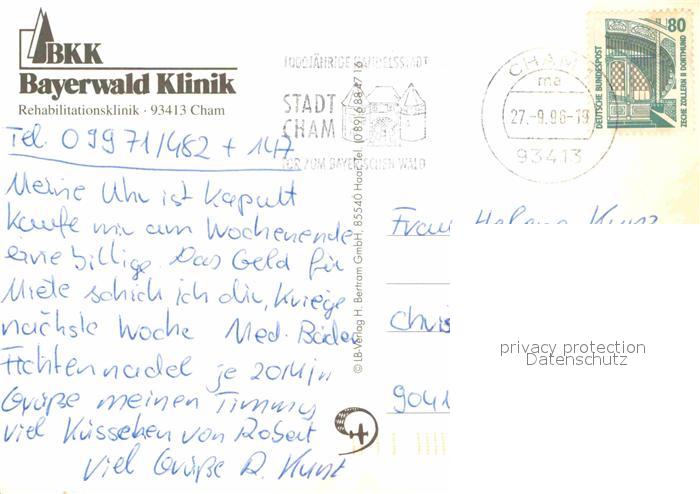 BKK
Bayerwald Klinik
Rehabilitationsklinik · 93413 Cham
Tel. 09971/482 + 147
Meine Uhr ist kaputt
kaufe mir am Wochenende
eine billige. Das Geld für
Miete schick ich dir, kriege
nächste Woche Med. Bäder
Fichtennadel je 20 Min
Grüße meinen Timmy
viel Küsschen von Robert
viel Grüße R. Kunz
© LB-Verlag H. Bertram GmbH, 85540 Haar, Tel. (0 89) 6 88 47 16
1000JÄHRIGE HANDELSSTADT
STADT
CHAM
TOR ZUM BAYERISCHEN WALD
CHAM
ma
27.-9.96-19
93413
80
DEUTSCHE BUNDESPOST
ZECHE ZOLLERN II DORTMUND
Frau Helene Kunz
Chris
9041
privacy protection
Datenschutz